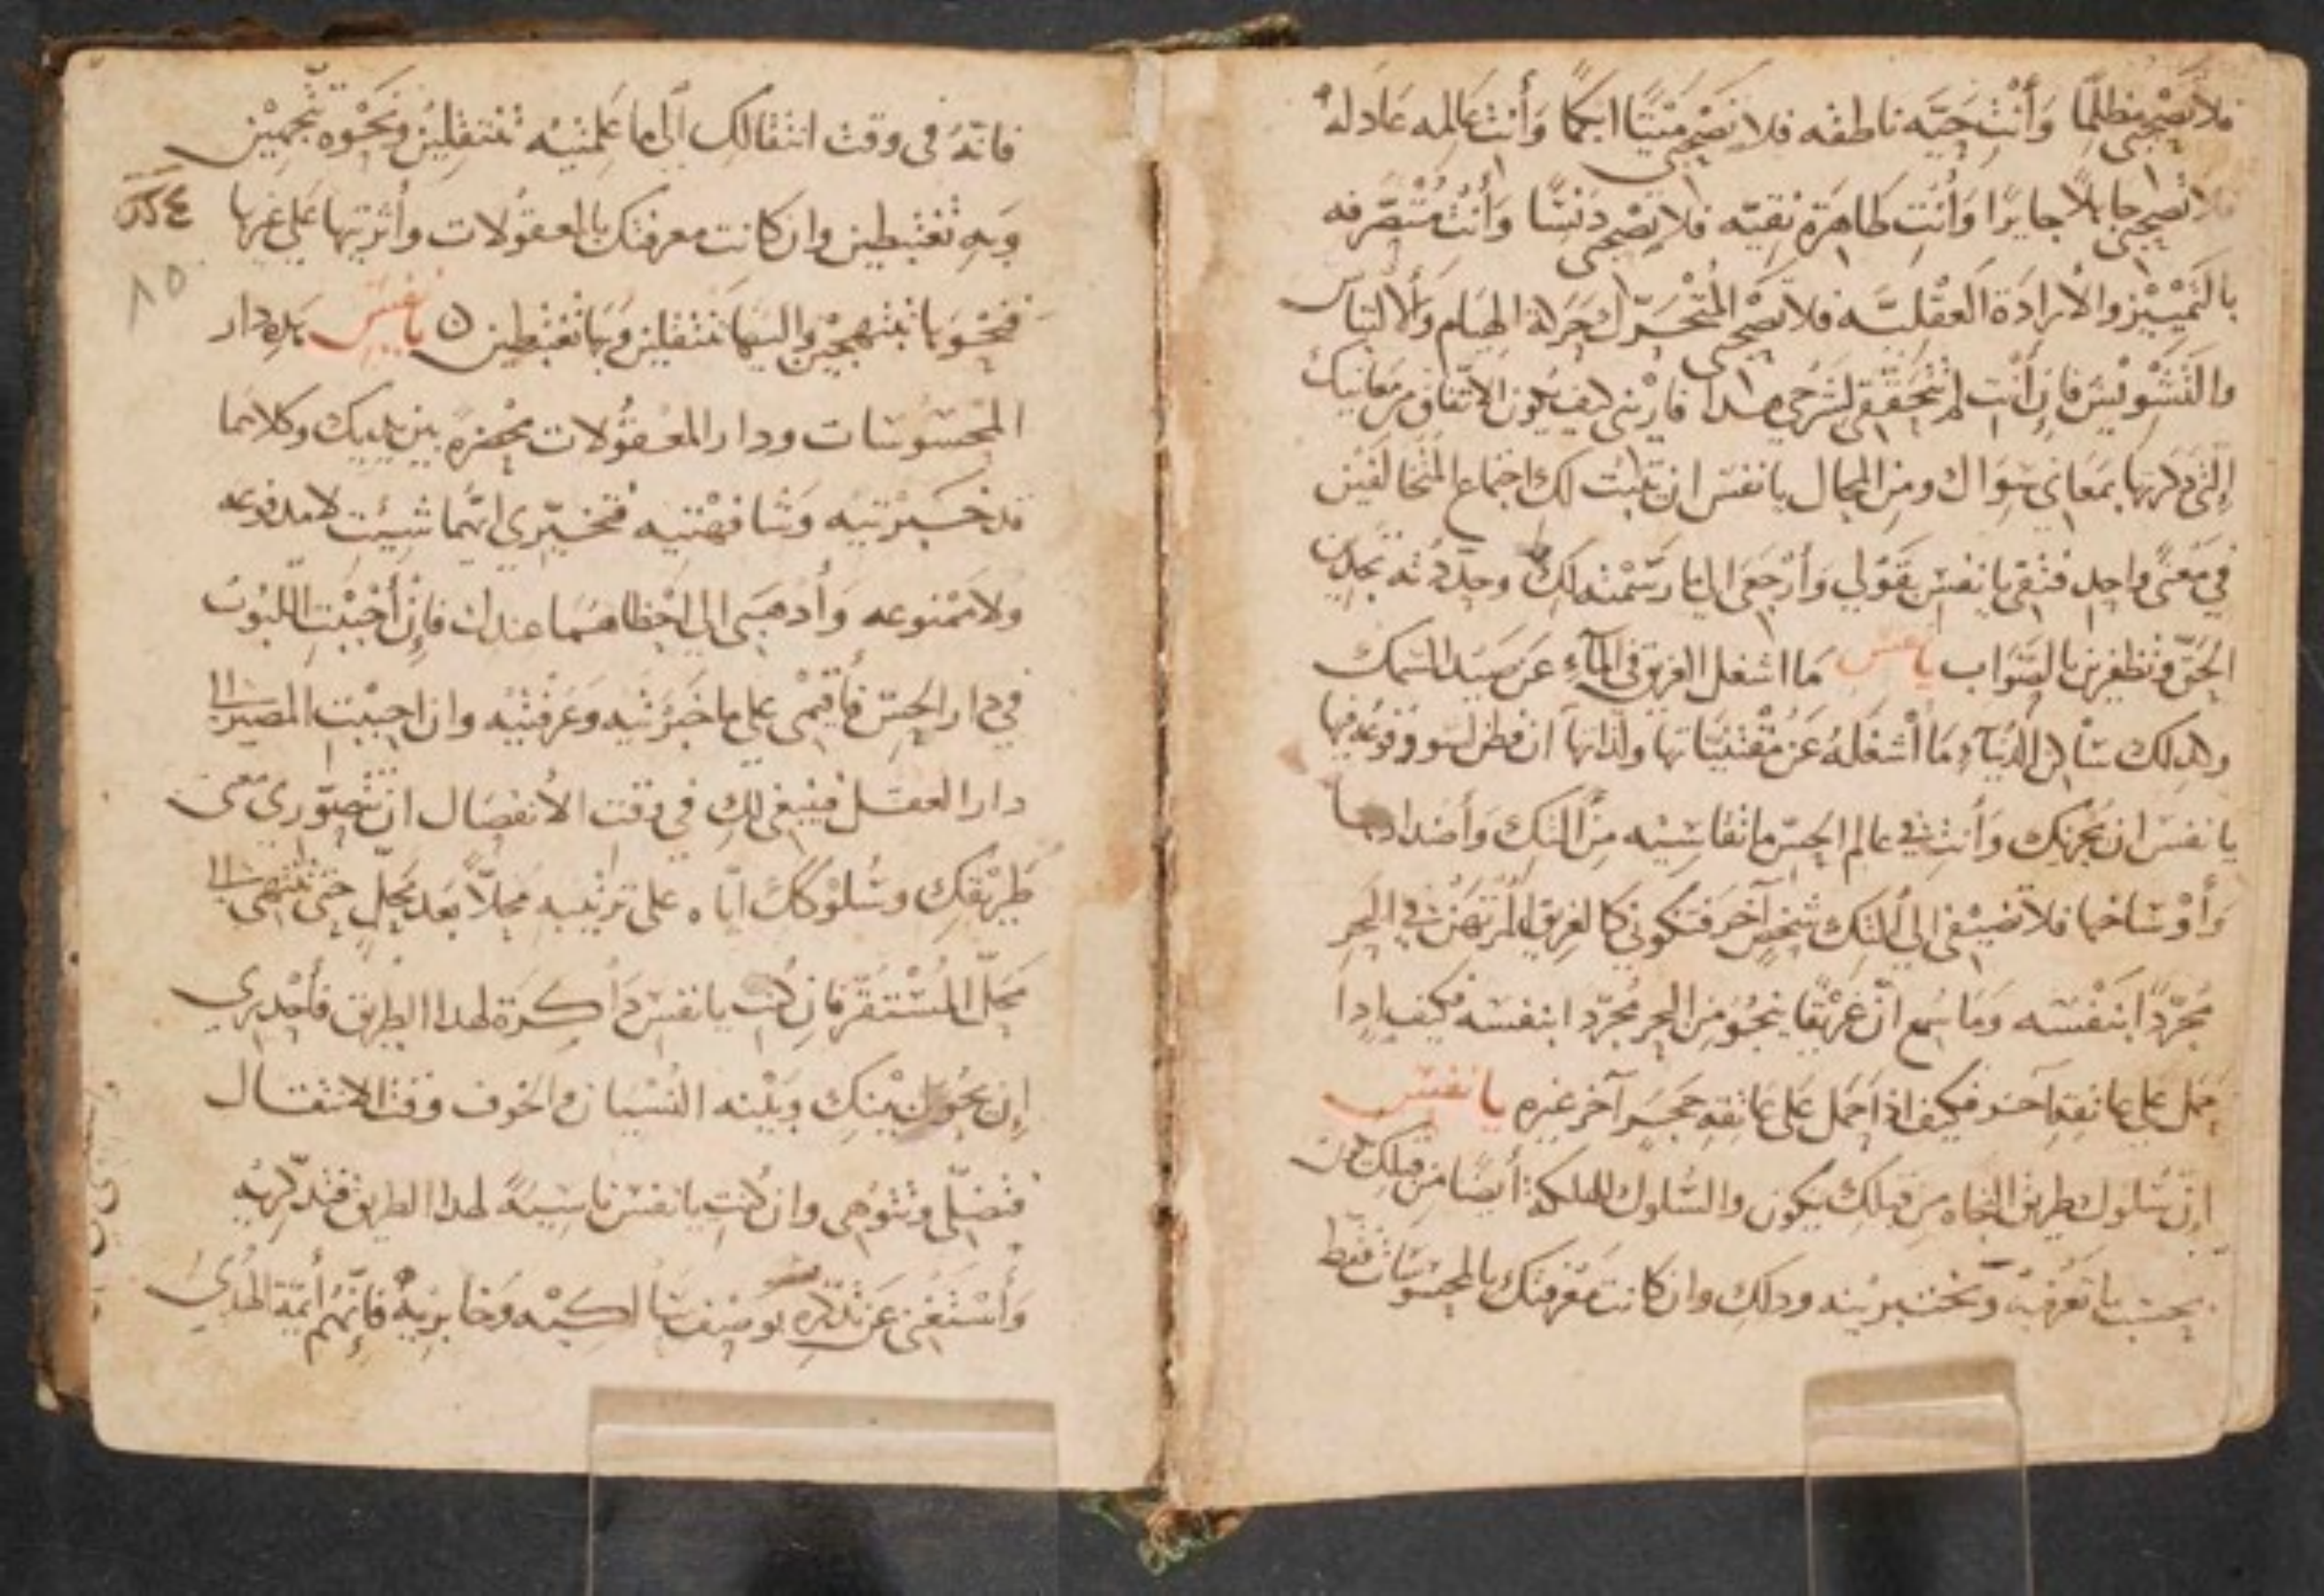 فلا تصحبي مظلمًا وَأَنْتِ حَيَّه ناطقه فلا تصحبي مَيْتًا ابكمًا وَأنت عَالمه عَادله
فلا تصحبي جاهلًا جايرًا وَأنتِ طاهرَة نقيّه فلا تصْحبي دَنسًا وَأنتِ مُتصَرفه
بالتَمْيِيْز والاْرادَة العَقْليَّه فلا تصْحبي المُتْحَرّك حَرَكة الهيَام وَالالتباس
والتَشْويْش فانِ أنْتِ لم تتحَققي لشَرْحي هدا فاريْني كيف يكون الاتفاق من معَانيك
التي دكرتها بمَعَاني سِوَاك ومن المحال يا نفس ان يثبت لك اجتماع المتخالفين
في مَعْنى واحدٍ فثقي يا نفس بقولي وَأرْجعي الى ما رسَمْته لكِ وحدّدته تجدين
الحَقّ وتظفرين بالصَوَاب يا نفس مَا اشغل الغريق في المآء عن صيد السَمك
وكدلك سَاكن الدُنيا وَمَا أَشغلهُ عَن مُقْتنيَاتها ولَذاتها ان فطن لسو وقوعه فيها
يا نفس ان يجزيك وَأنتِ في عالم الحس ما تقاسيْه مِن النتك وَأضدادها
وَأوْسَاخها فلا تضيفي الى النتك شخصٍ آخر فتكوني كالغريق المرتهَن في البحر
مُجرّدًا بنَفْسَه وَمَا سُمع انّ غَريْقًا ينجُو مِن البحر مُجرّدا بنفسَه فكيف ادا
حمل على عاتقه آخر فكيف اذا حمل على عَاتقه حجَر آخر غيره يا نفس
اِنّ سُلوك طريق النجاه من قبلك يكون والسُلوك للهلكة أيضًا من قبلك يكون
بحسَب ما تعرفيْه وَتختبريْه ودلك وان كانت مَعْرفتك بالمحسُوسَات فقط
فانّهُ في وقت انتقالك الى ما عَلمتيْه تنتقلين ونحْوه تتجهيْن
وَبهِ تغتبطين وان كانت معرفتك بالمعقولات وأثرتها على غيرها
فنحْوَها تبتهجيْن واليها تنتقلين وَبهَا تغتبطين ن يا نفس هَده دار
المحْسُوسَات ودار المعْقُولات محْضرة بين يديك وكلاهما
قد خَبَرْتيْه وَشافهْتيه فتخيّري ايّهما شئتِ لا مدفوعه
ولا مَمْنوعه وَأدهَبي الى احْظاهمَا عندك فإنْ أحْبَبْتِ اللّبُوث
في دار الحسّ فأقيْمي على ما خبَرْتيه وعَرفتيْه وان احببْت المصير الى
دار العقل فينبغي لكِ في وقت الانفصَال ان تتصوّري معَنى
طَريْقكِ وسُلوْككِ ايّاه على تَرتيْبه محلًّا بَعد محلٍّ حتى تنتهي الى
محَلّ المُسْتقرّ فان كنتِ يا نفس دَاكرَة لهدا الطريق فأحْدري
إن يحُول بيْنكِ وبَيْنه النسْيان والخوف وقت الانتقال
فتضلّي وتتوهي وان كنتِ يا نفس ناسيَةً لهدا الطريق فتدكّريْهِ
وَأسْتَغْني عَن تدكره بوصْف سَالكيْه وخابريْه فانّهم أئمّة الهُدَى
٨٥